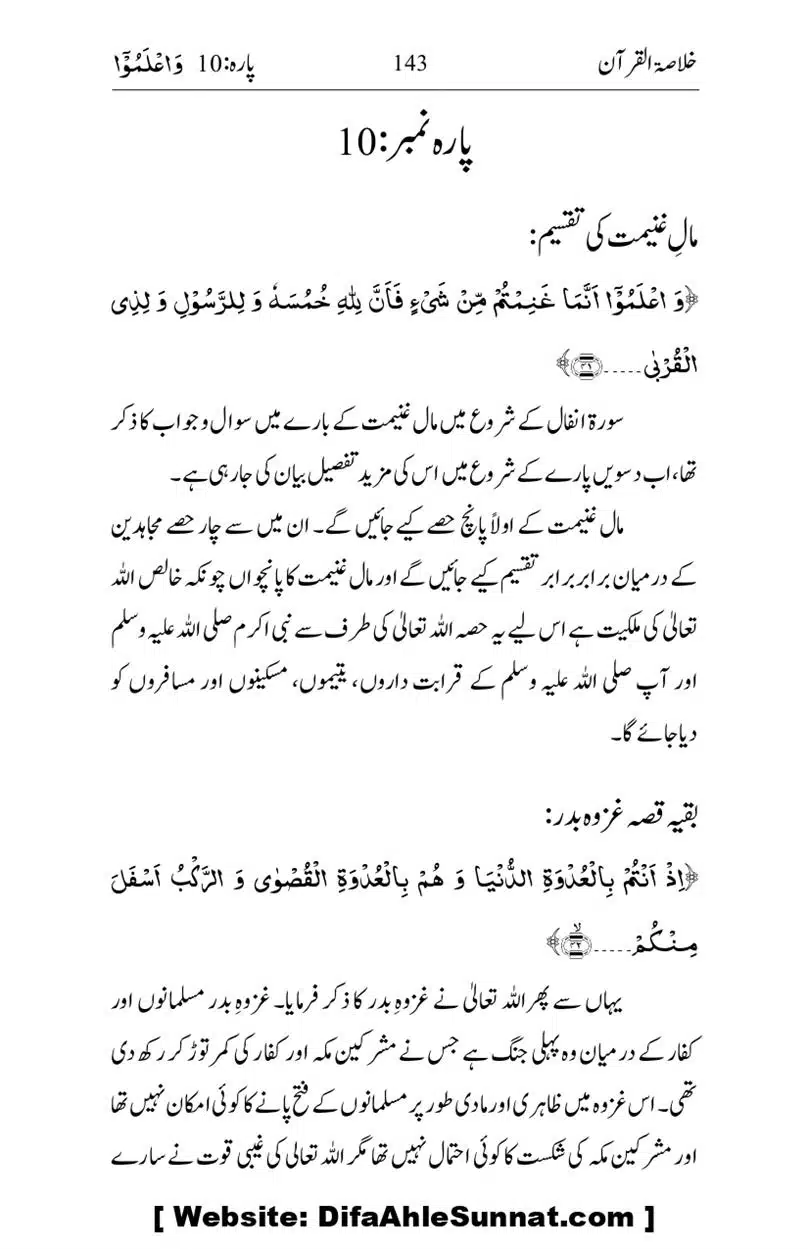 خلاصۃ القرآن 143 پارہ:10 وَاعْلَمُوْٓا
پارہ نمبر:10
مالِ غنیمت کی تقسیم:
﴿وَ اعْلَمُوْٓا اَنَّمَا غَنِمْتُمْ مِّنْ شَیْءٍ فَاَنَّ لِلّٰهِ خُمُسَهٗ وَ لِلرَّسُوْلِ وَ لِذِی
الْقُرْبٰی.....﴿۴۱﴾﴾
سورۃ انفال کے شروع میں مال غنیمت کے بارے میں سوال وجواب کا ذکر
تھا، اب دسویں پارے کے شروع میں اس کی مزید تفصیل بیان کی جارہی ہے۔
مال غنیمت کے اولاً پانچ حصے کیے جائیں گے۔ ان میں سے چار حصے مجاہدین
کے درمیان برابر برابر تقسیم کیے جائیں گے اور مال غنیمت کا پانچواں چونکہ خالص اللہ
تعالیٰ کی ملکیت ہے اس لیے یہ حصہ اللہ تعالیٰ کی طرف سے نبی اکرم صلی اللہ علیہ وسلم
اور آپ صلی اللہ علیہ وسلم کے قرابت داروں، یتیموں، مسکینوں اور مسافروں کو
دیا جائے گا۔
بقیہ قصہ غزوہ بدر:
﴿اِذْ اَنْتُمْ بِالْعُدْوَةِ الدُّنْیَا وَ هُمْ بِالْعُدْوَةِ الْقُصْوٰی وَ الرَّكْبُ اَسْفَلَ
مِنْكُمْ.....﴿ۙ۴۲﴾﴾
یہاں سے پھر اللہ تعالیٰ نے غزوہِ بدر کا ذکر فرمایا۔ غزوہِ بدر مسلمانوں اور
کفار کے درمیان وہ پہلی جنگ ہے جس نے مشرکین مکہ اور کفار کی کمر توڑ کر رکھ دی
تھی۔ اس غزوہ میں ظاہری اور مادی طور پر مسلمانوں کے فتح پانے کا کوئی امکان نہیں تھا
اور مشرکین مکہ کی شکست کا کوئی احتمال نہیں تھا مگر اللہ تعالی کی غیبی قوت نے سارے
[ Website: DifaAhleSunnat.com ]